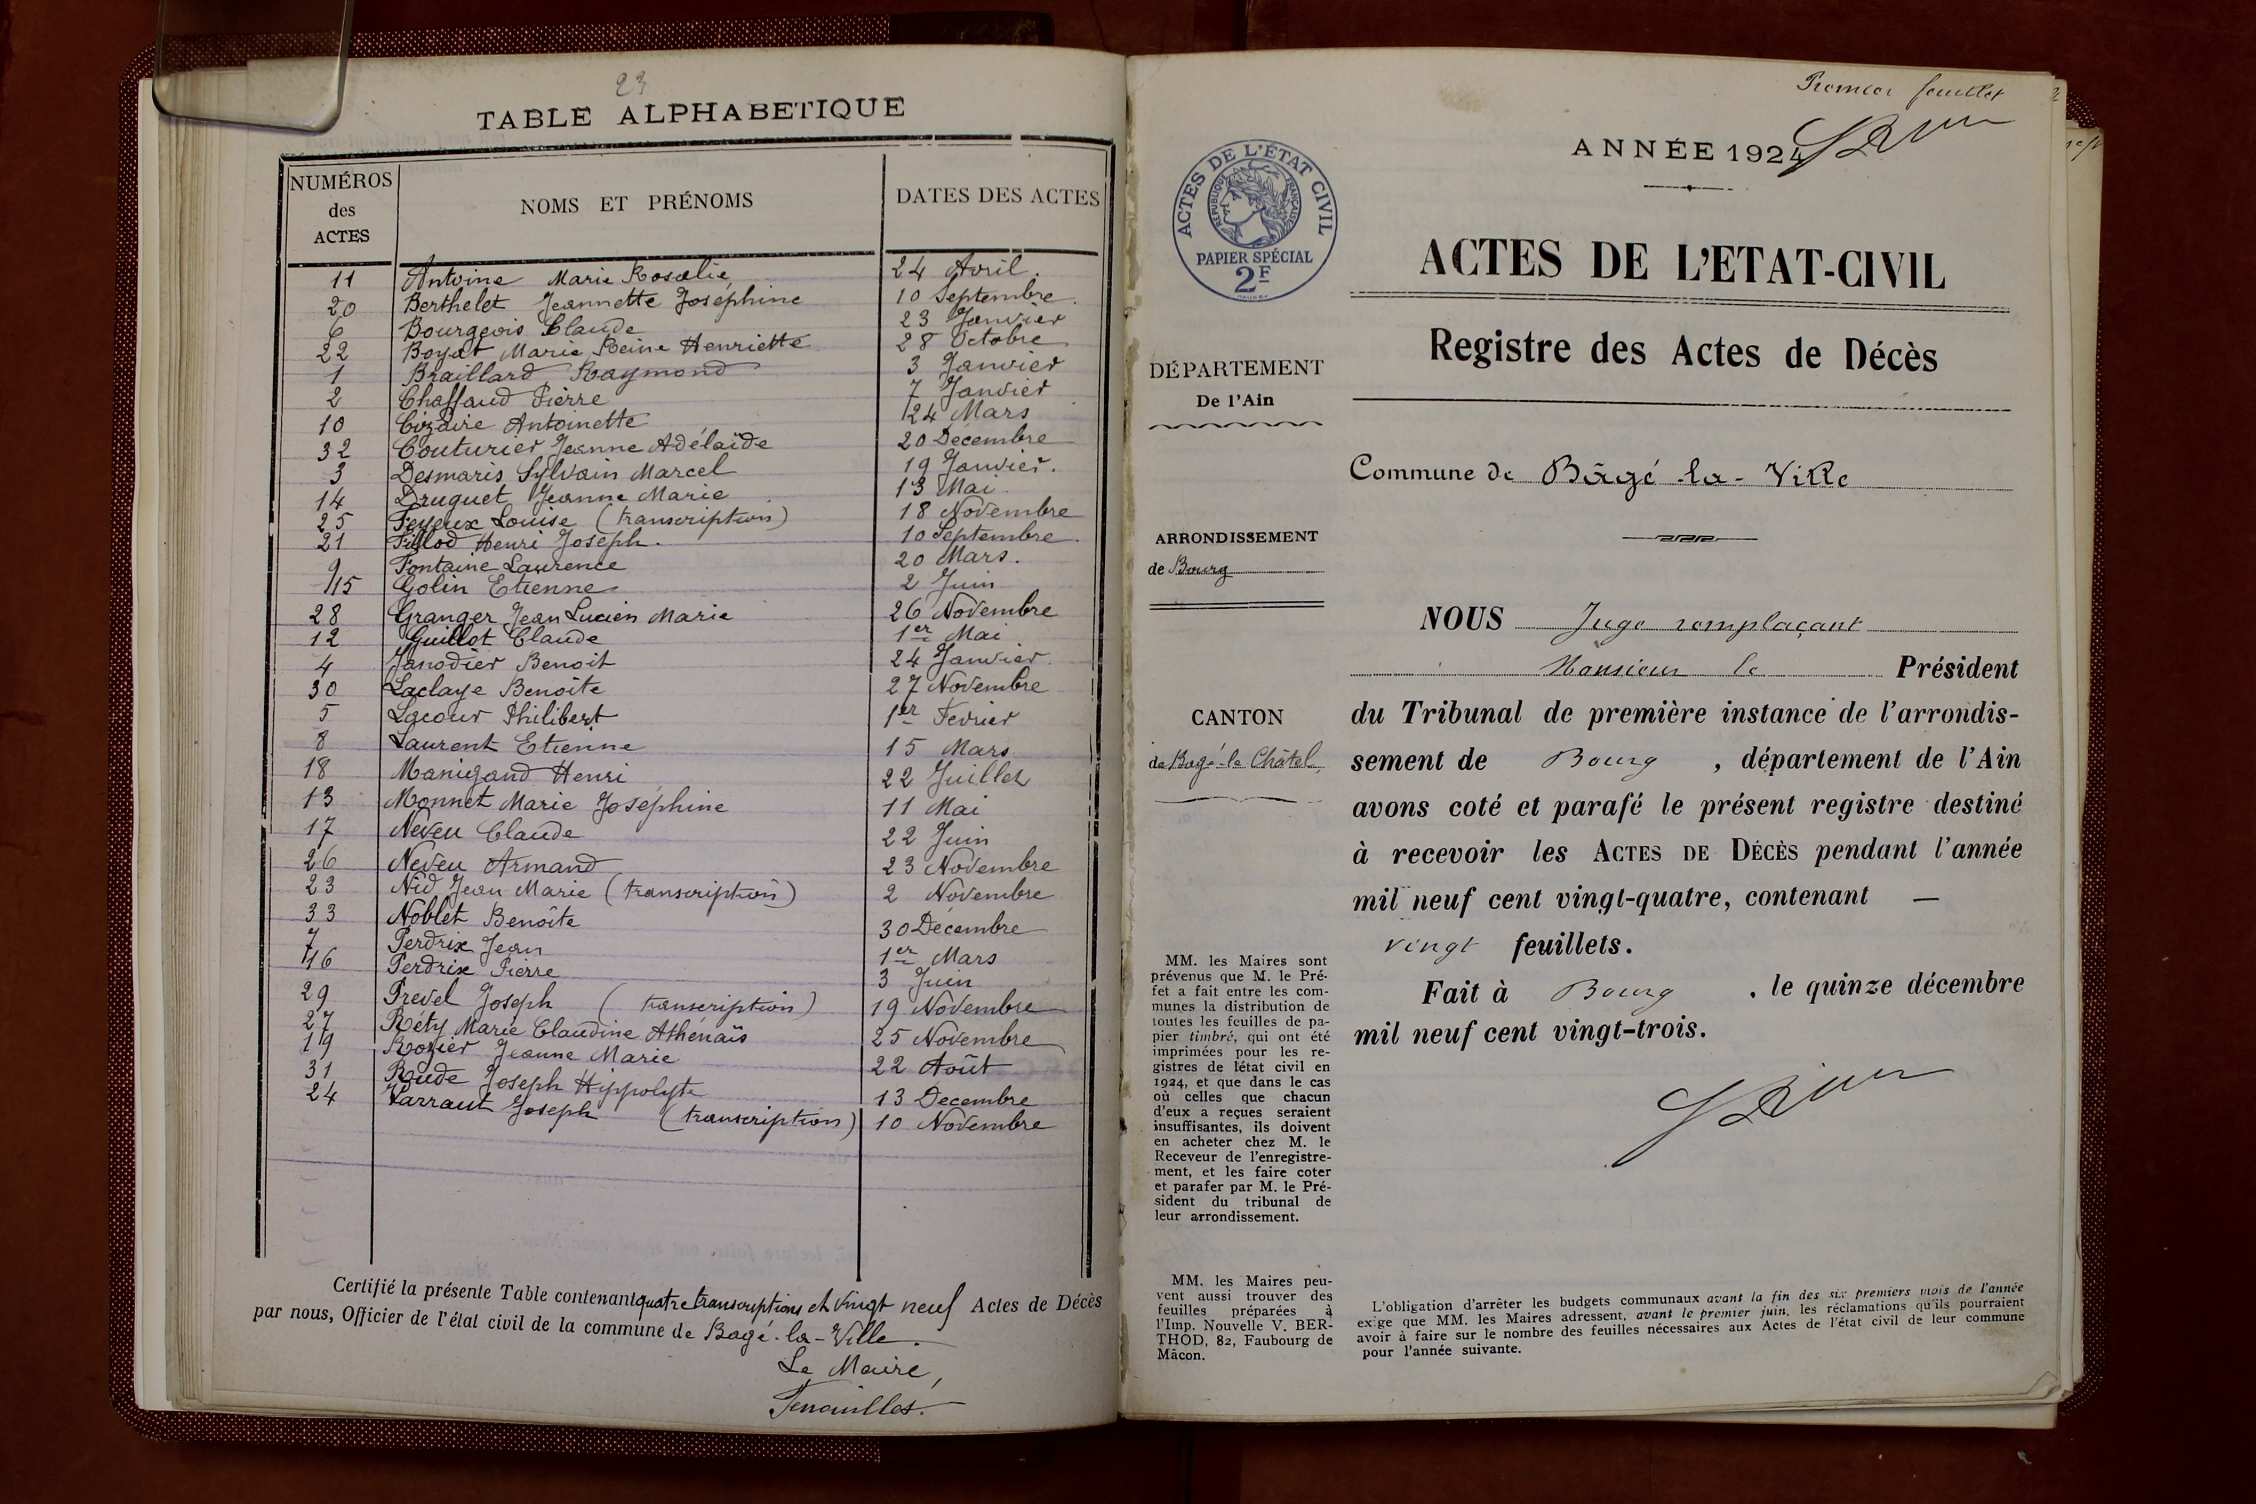 23
TABLE ALPHABETIQUE
NUMÉROS des ACTES NOMS ET PRÉNOMS DATES DES ACTES
11 Antoine Marie Rosalie 24 Avril.
20 Berthelet Jeannette Joséphine 10 Septembre.
6 Bourgeois Claude 23 Janvier
22 Boyat Marie Reine Henriette 28 Octobre
1 Braillard Raymond 3 Janvier
2 Chaffaud Pierre 7 Janvier
10 Cizaire Antoinette 24 Mars
32 Couturier Jeanne Adélaïde 20 Décembre
3 Desmaris Sylvain Marcel 19 Janvier.
14 Druguet Jeanne Marie 13 Mai
25 Feyeux Louise (transcription) 18 Novembre
21 Fillod Henri Joseph. 10 Septembre.
9 Fontaine Laurence 20 Mars.
15 Golin Etienne 2 Juin
28 Granger Jean Lucien Marie 26 Novembre
12 Guillot Claude 1er Mai
4 Janodier Benoit 24 Janvier.
30 Laclaye Benoîte 27 Novembre
5 Lacour Philibert 1er Février
8 Laurent Etienne 15 Mars
18 Manigand Henri 22 Juillet
13 Monnet Marie Joséphine 11 Mai
17 Neveu Claude 22 Juin
26 Neveu Armand 23 Novembre
23 Nid Jean Marie (transcription) 2 Novembre
33 Noblet Benoîte 30 Décembre
7 Perdrix Jean 1er Mars
16 Perdrix Pierre 3 Juin
29 Prevel Joseph (transcription) 19 Novembre
27 Réty Marie Claudine Athénaïs 25 Novembre
19 Rozier Jeanne Marie 22 Août
31 Rude Joseph Hippolyte 13 Decembre
24 Varraut Joseph (transcription) 10 Novembre
Certifié la présente Table contenant quatre transcriptions et vingt neuf Actes de Décès
par nous, Officier de l'état civil de la commune de Bagé-la-Ville.
Le Maire,
Premier feuillet
ANNÉE 1924
ACTES DE L'ÉTAT CIVIL
RÉPUBLIQUE FRANÇAISE
PAPIER SPÉCIAL
2F
ACTES DE L'ETAT-CIVIL
Registre des Actes de Décès
DÉPARTEMENT
De l'Ain
Commune de Bâgé-la-Ville
ARRONDISSEMENT
de Bourg
CANTON
de Bagé-le-Châtel
NOUS Juge remplaçant
Monsieur le Président
du Tribunal de première instance de l'arrondis-
sement de Bourg, département de l'Ain
avons coté et parafé le présent registre destiné
à recevoir les ACTES DE DÉCÈS pendant l'année
mil neuf cent vingt-quatre, contenant —
vingt feuillets.
Fait à Bourg, le quinze décembre
mil neuf cent vingt-trois.
MM. les Maires sont
prévenus que M. le Pré-
fet a fait entre les com-
munes la distribution de
toutes les feuilles de pa-
pier timbré, qui ont été
imprimées pour les re-
gistres de l'état civil en
1924, et que dans le cas
où celles que chacun
d'eux a reçues seraient
insuffisantes, ils doivent
en acheter chez M. le
Receveur de l'enregistre-
ment, et les faire coter
et parafer par M. le Pré-
sident du tribunal de
leur arrondissement.
MM. les Maires peu-
vent aussi trouver des
feuilles préparées à
l'Imp. Nouvelle V. BER-
THOD, 82, Faubourg de
Mâcon.
L'obligation d'arrêter les budgets communaux avant la fin des six premiers mois de l'année
exige que MM. les Maires adressent, avant le premier juin, les réclamations qu'ils pourraient
avoir à faire sur le nombre des feuilles nécessaires aux Actes de l'état civil de leur commune
pour l'année suivante.